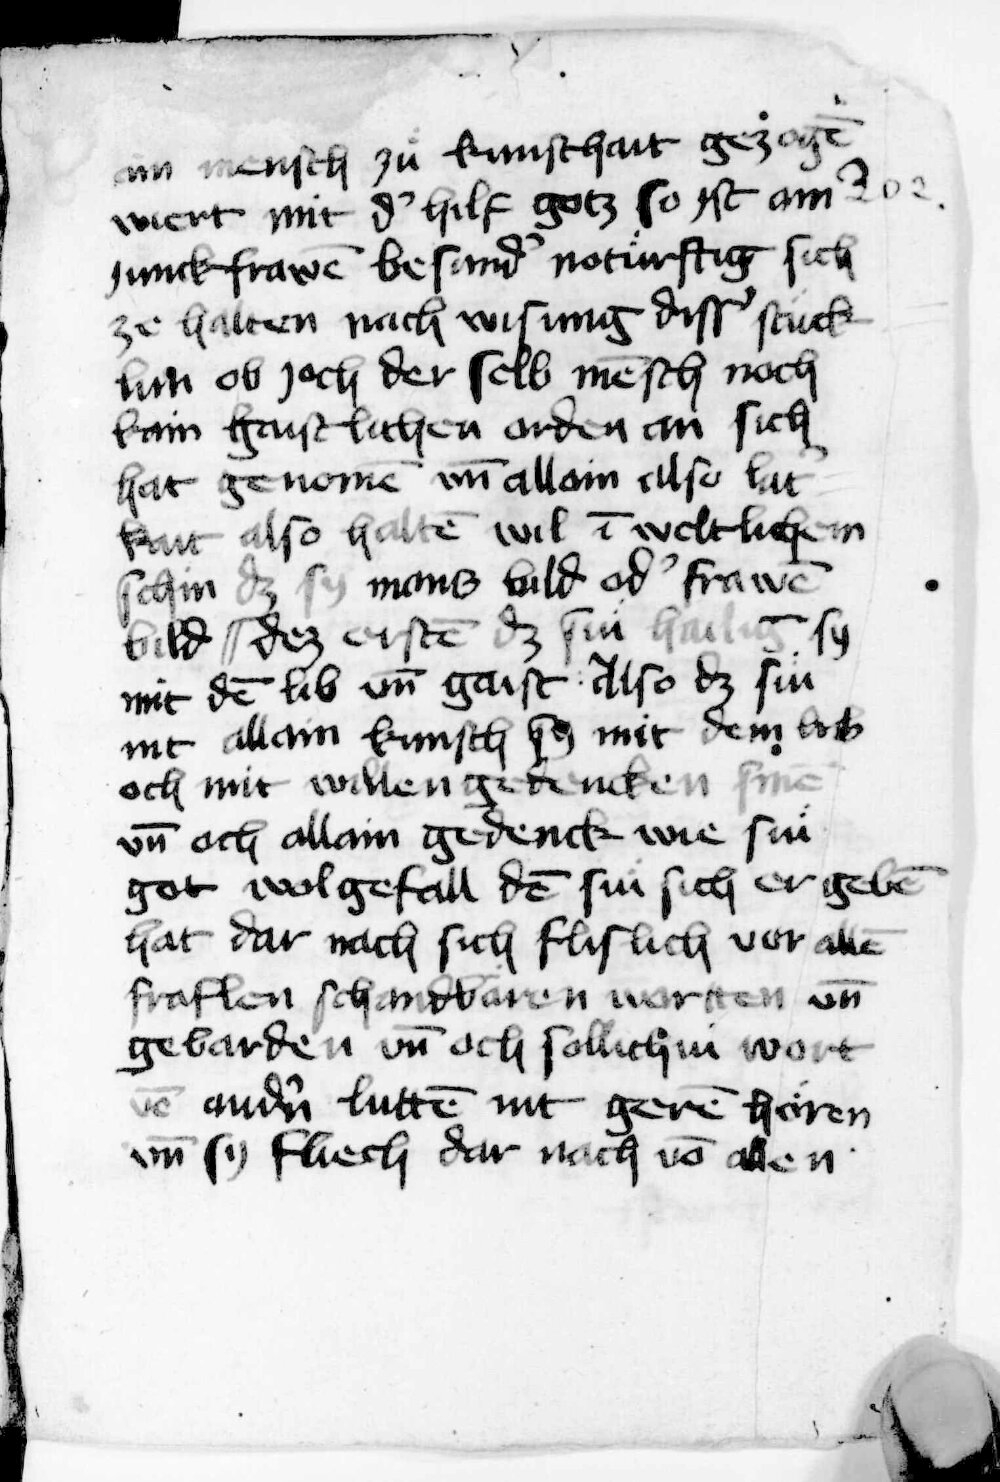 ain mensch zů kunschait gezogē
wiert mit d' hilf gotz so ist ain
junckfrawē besund' notürftig sich
ze halten nach wisung diss' stück
lun ob joch der selb mēsch noch
kain gaistlichen orden an sich
hat genomē vn̄ allain also lut'
kait also haltē wil ī weltlichem
schin dz sy mans bild od' frawē
bild dez erstē dz siu hailig sy
mit dē lib vn̄ gaist Also dz siu
nit allain kunsch sy mit dem lib
och mit willen gedencken
vn̄ och allain gedenck wie siu
got wolgefall dē siu sich ergebē
hat dar nach sich flislich vor allē
fraflen schandbären wortten vn̄
gebarden vn̄ och sollichiu wort
vō andn̄ luttē nit gerē hören
vn̄ sy fliech dar nach vō allen